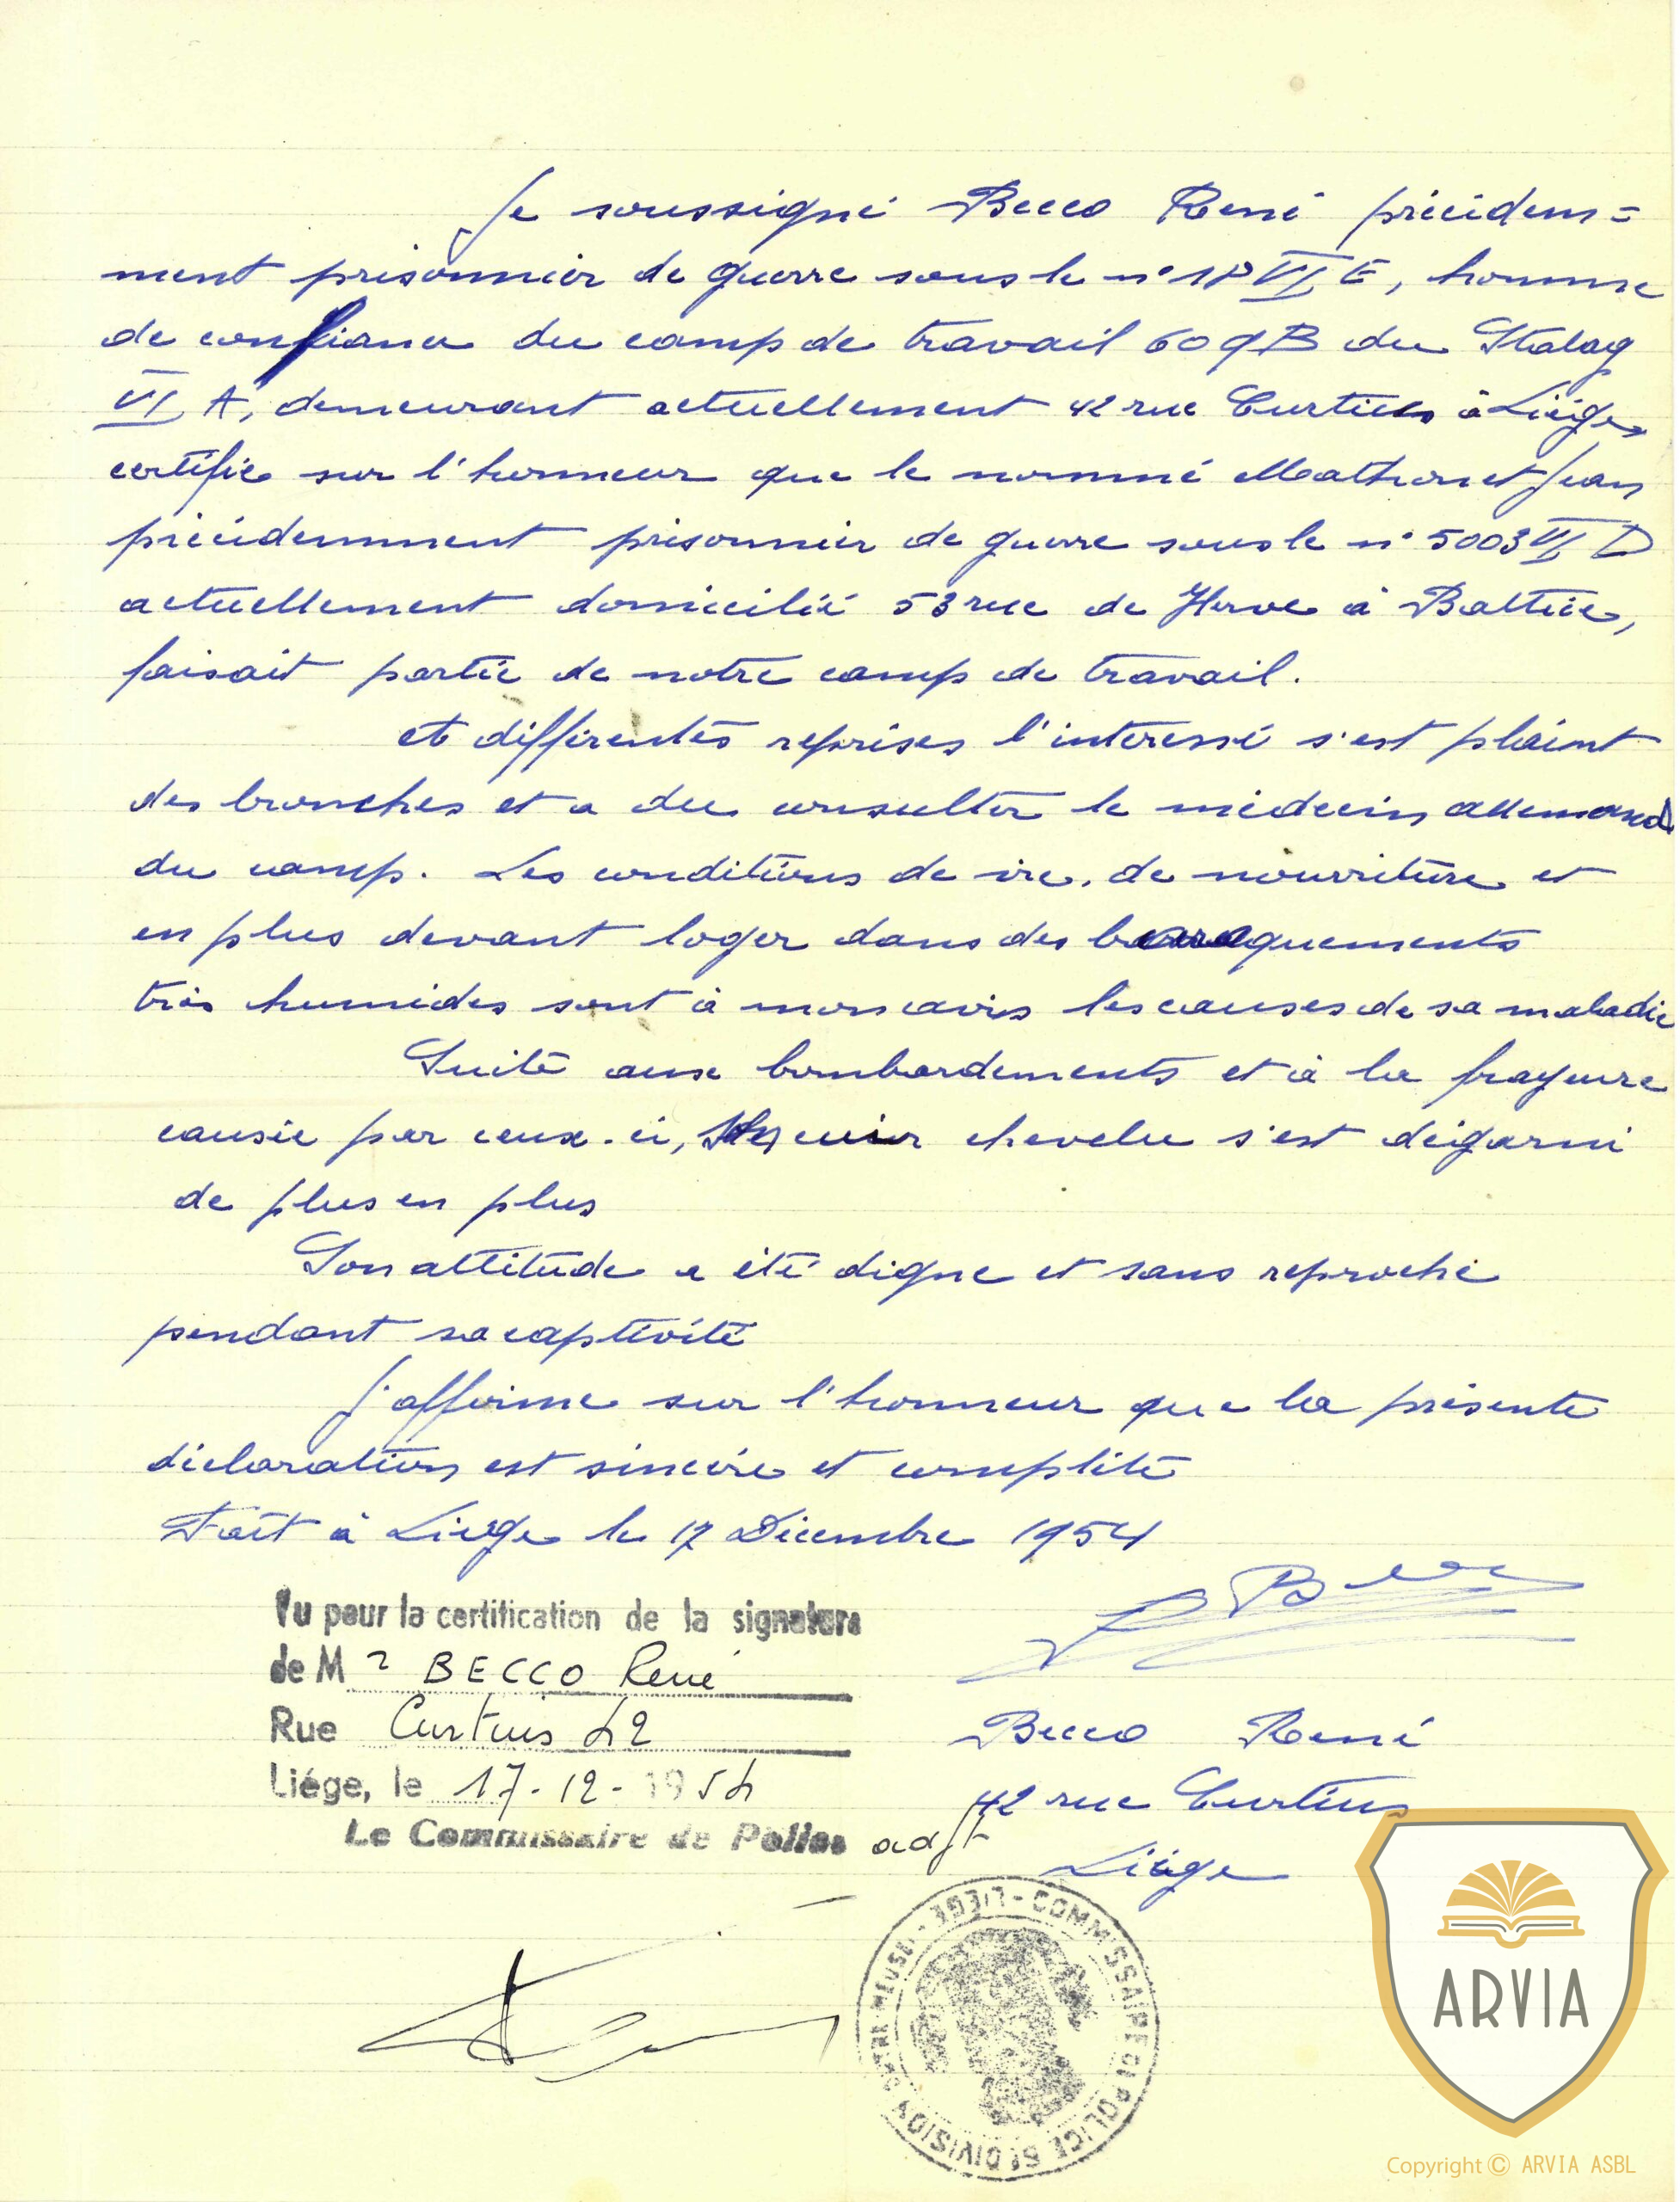 Je soussigné Becco René précidem=
ment prisonnier de guerre sous le n° VI E, homme
de confiance du camp de travail 609B du Stalag
VI A, demeurant actuellement 42 rue Curtius à Liège,
certifie sur l'honneur que le nommé Mathonet Jean
précidemment prisonnier de guerre sous le n° 5003 VI D
actuellement domicilié 53 rue de Herve à Battice,
faisait partie de notre camp de travail.
A différentes reprises l'intéressé s'est plaint
des bronches et a du consulter le médecin allemand
du camp. Les conditions de vie, de nourriture et
en plus devant loger dans des baraquements
très humides sont à mon avis les causes de sa maladie
Suite aux bombardements et à la frayeure
causée par ceux-ci, cuir chevelu s'est dégarni
de plus en plus
Son attitude a été digne et sans reproche
pendant sa captivité
J'affirme sur l'honneur que la présente
déclaration est sincère et complète
Fait à Liège le 17 Décembre 1954
Vu pour la certification de la signature
de Mr BECCO René
Rue Curtius 42
Liége, le 17-12-1954
Le Commissaire de Police adjt
Becco René
42 rue Curtius
Liège
COMMISSAIRE DE POLICE 6e DIVISION OUTRE-MEUSE - LIEGE -
ARVIA
Copyright © ARVIA ASBL